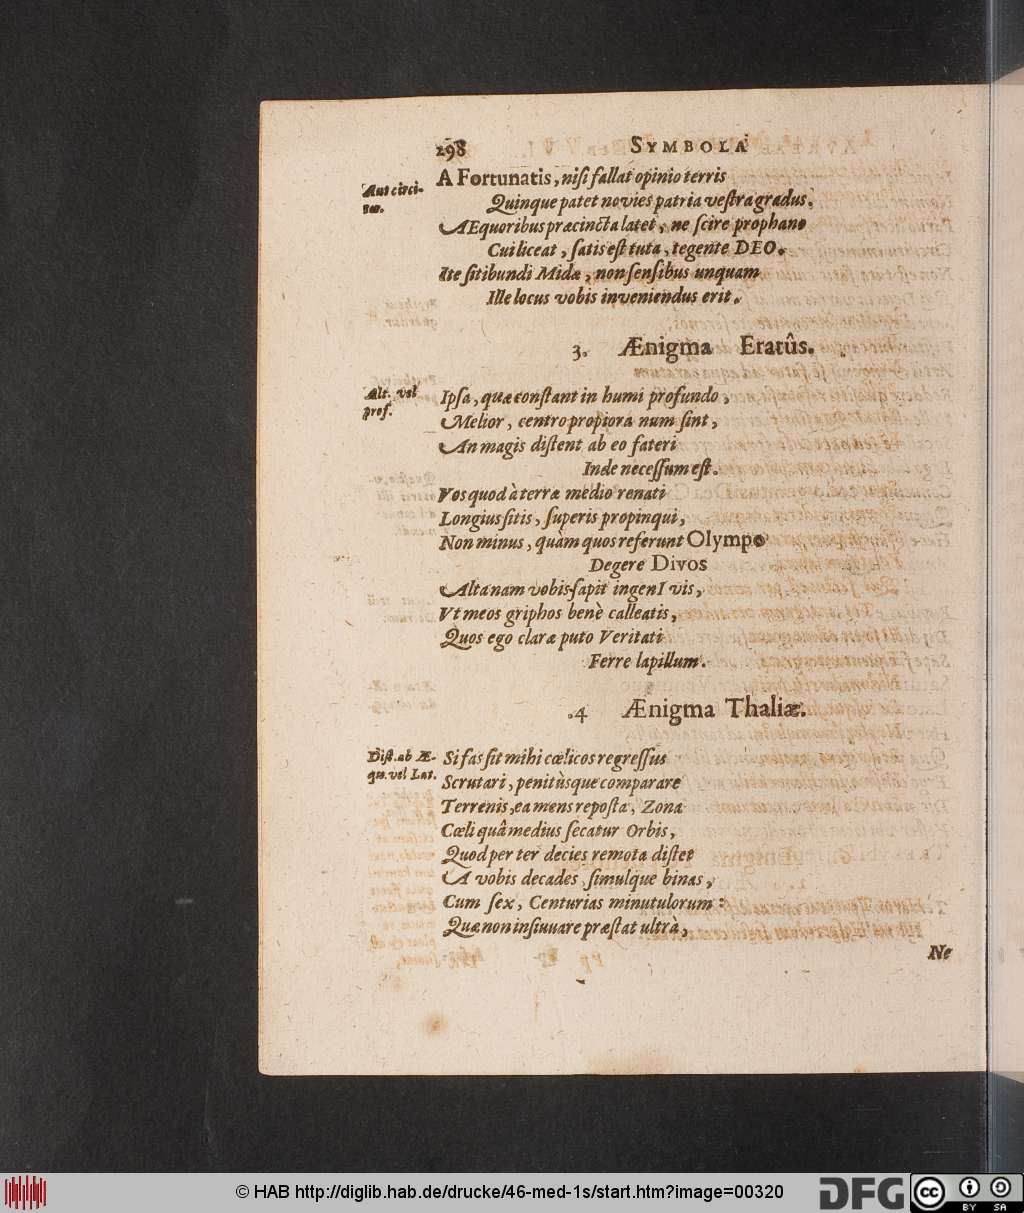 298 SYMBOLA
Aut circi-
ter.
A Fortunatis, nisi fallat opinio terris
Quinque patet novies patria vestra gradus.
AEquoribus præcincta latet, ne scire prophano
Cui liceat, satis est tuta, tegente DEO.
Ite sitibundi Midæ, non sensibus unquam
Ille locus vobis inveniendus erit.
3. Ænigma Eratûs.
Alt. vel
prof.
Ipsa, quæ constant in humi profundo,
Melior, centro propiora num sint,
An magis distent ab eo fateri
Inde necessum est.
Vos quod à terræ medio renati
Longius sitis, superis propinqui,
Non minus, quàm quos referunt Olympo
Degere Divos
Alta nam vobis sapit ingenI vis,
Vt meos griphos benè calleatis,
Quos ego claræ puto Veritati
Ferre lapillum.
.4 Ænigma Thaliæ.
Dist. ab Æ-
qu. vel Lat.
Si fas sit mihi cœlicos regressus
Scrutari, penitùsque comparare
Terrenis, ea mens reposta, Zona
Cœli quâ medius secatur Orbis,
Quod per ter decies remota distet
A vobis decades, simulque binas,
Cum sex, Centurias minutulorum:
Quæ non insinuare præstat ultrà,
Ne
© HAB http://diglib.hab.de/drucke/46-med-1s/start.htm?image=00320
DFG
cc BY SA